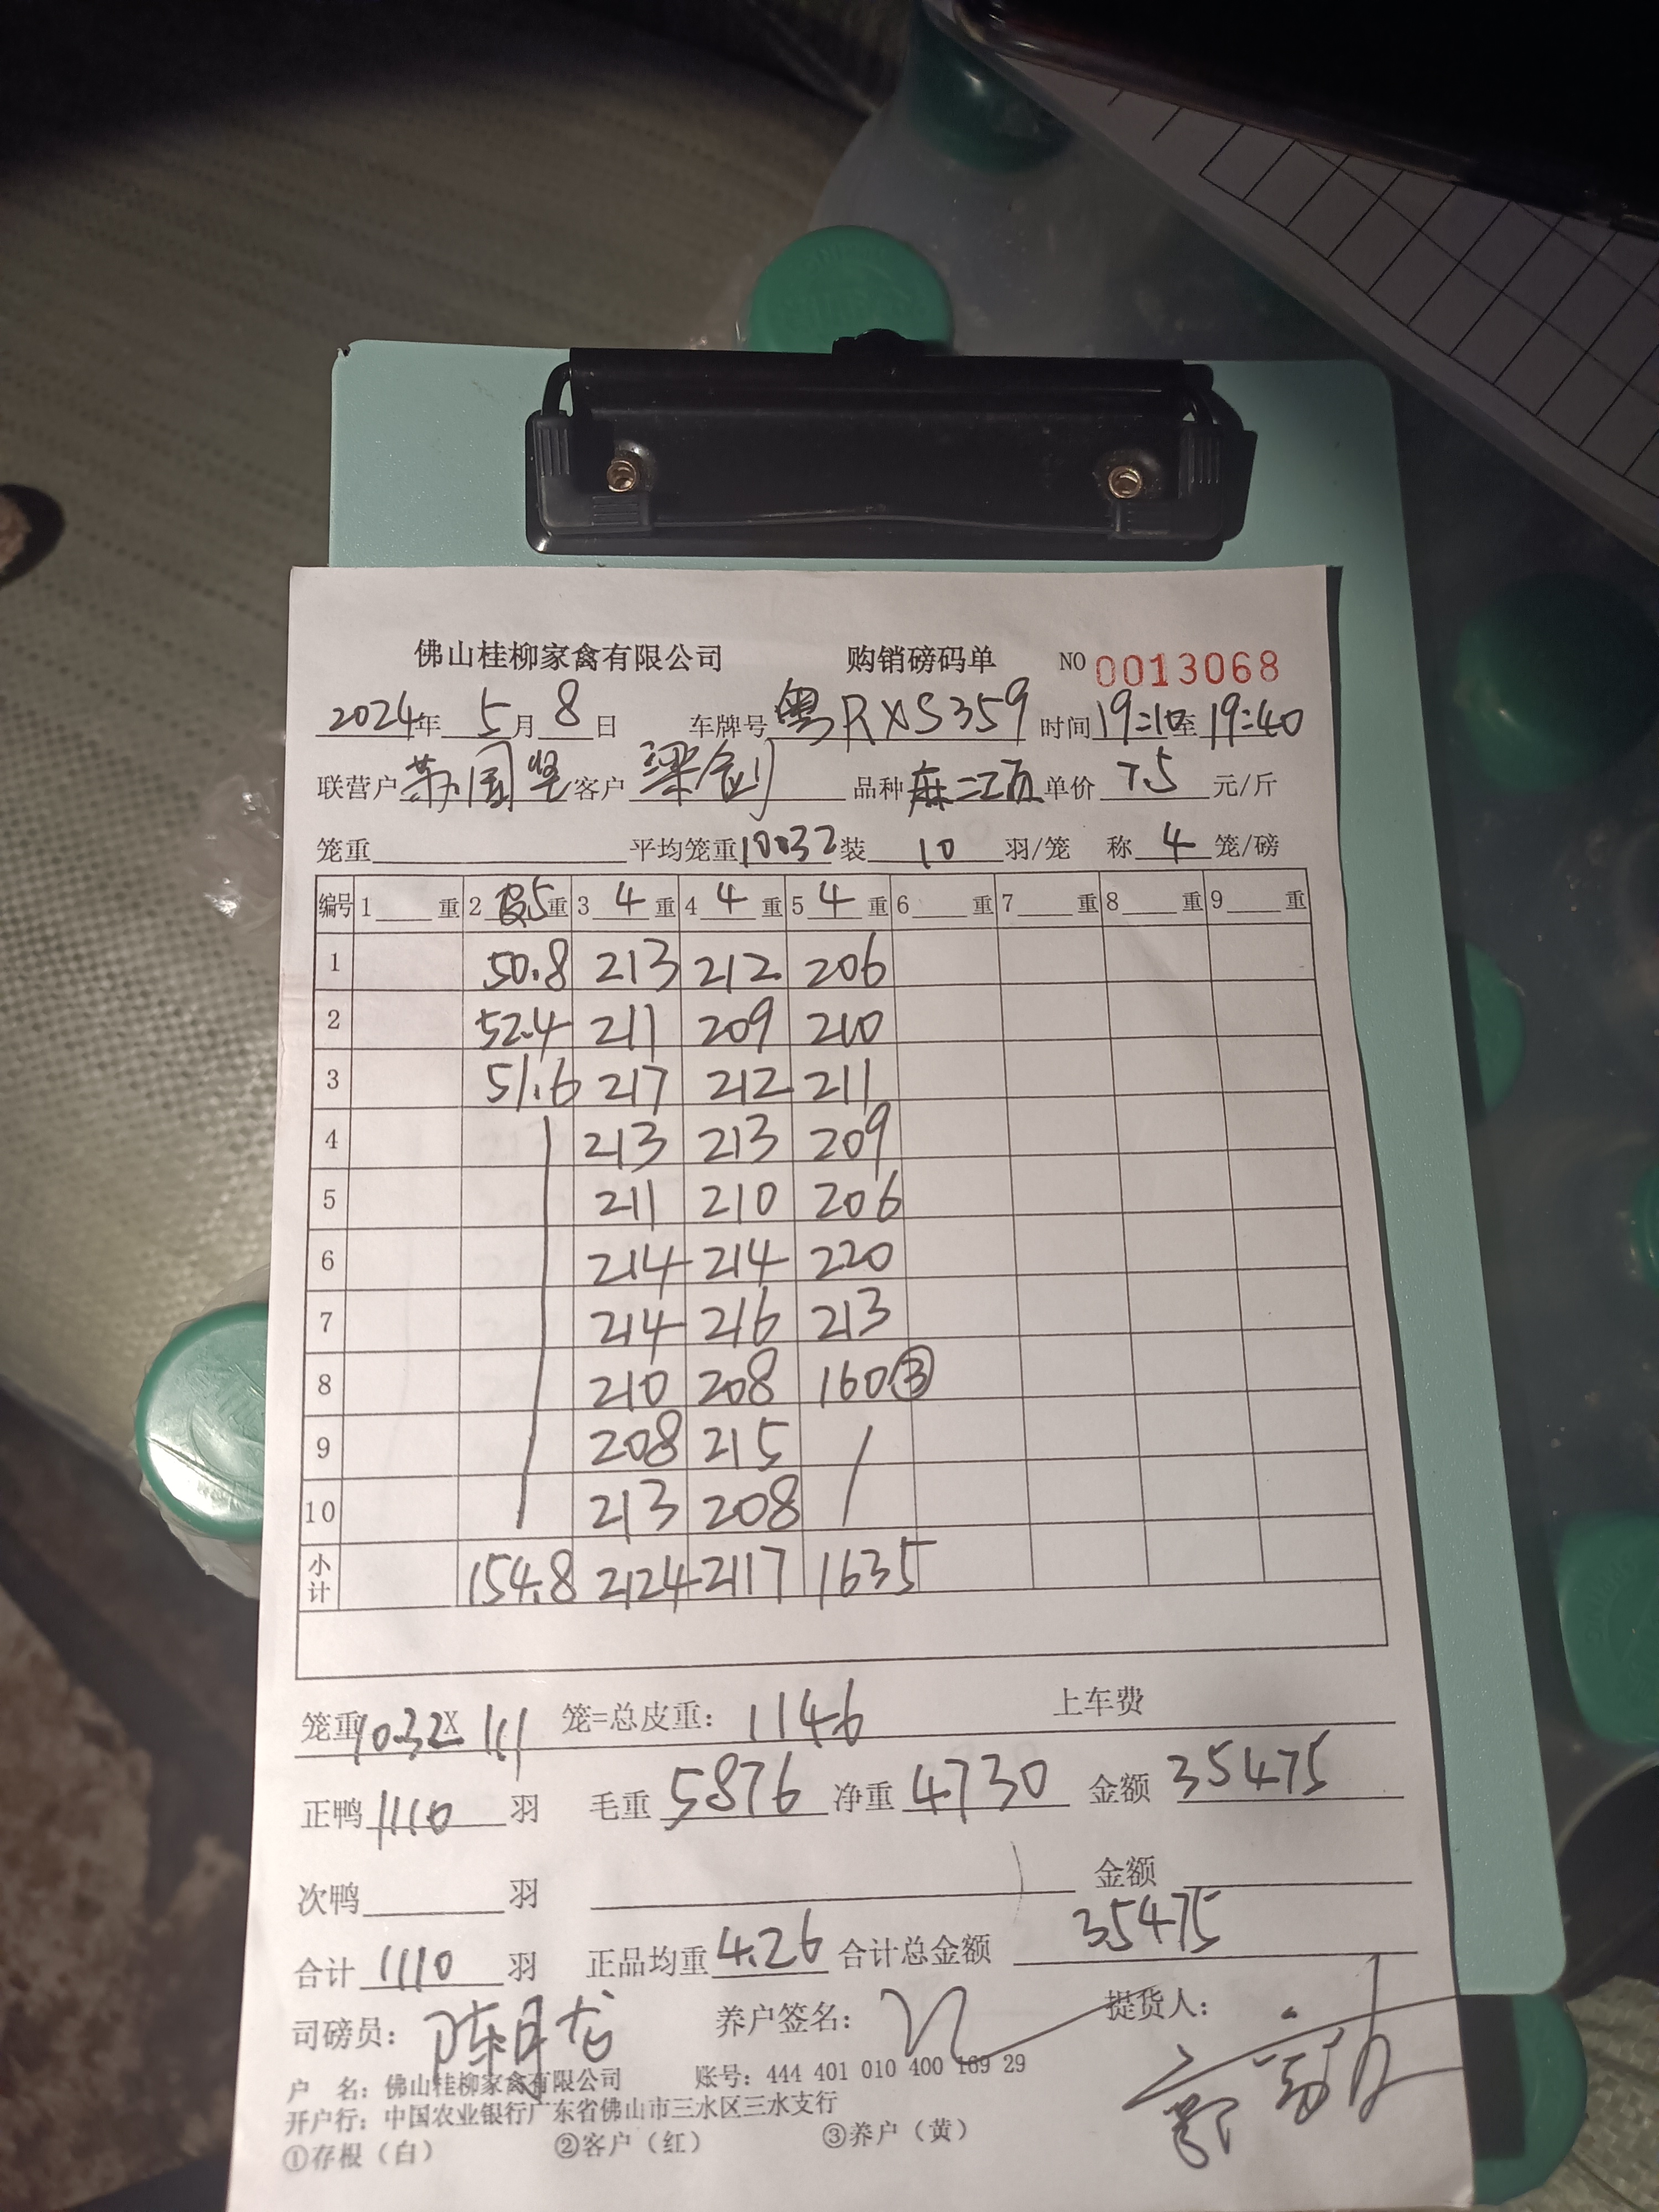 佛山桂柳家禽有限公司 购销磅码单 NO 0013068
2024年 5月 8日 车牌号 粤RXS359 时间 19:10至19:40
联营户 国坚 客户 梁剑 品种 麻二 单价 7.5 元/斤
笼重 平均笼重 10.32 装 10 羽/笼 称 4 笼/磅
编号 1 重 2 皮5 重 3 4 重 4 4 重 5 4 重 6 重 7 重 8 重 9 重
1 50.8 213 212 206
2 52.4 211 209 210
3 51.6 217 212 211
4 213 213 209
5 211 210 206
6 214 214 220
7 214 216 213
8 210 208 160③
9 208 215
10 213 208
小计 154.8 2124 2117 1635
笼重10.32X 111 笼=总皮重: 1146 上车费
正鸭 1110 羽 毛重 5876 净重 4730 金额 35475
次鸭 羽 金额
合计 1110 羽 正品均重 4.26 合计总金额 35475
司磅员: 陈月龙 养户签名: 提货人:
户 名: 佛山桂柳家禽有限公司 账号: 444 401 010 400 169 29
开户行: 中国农业银行广东省佛山市三水区三水支行
①存根（白） ②客户（红） ③养户（黄）